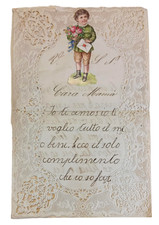 Cara Mamma
Io te amo io ti
voglio tutto il mi
o bene. Ecco il solo
complimento
che io so far